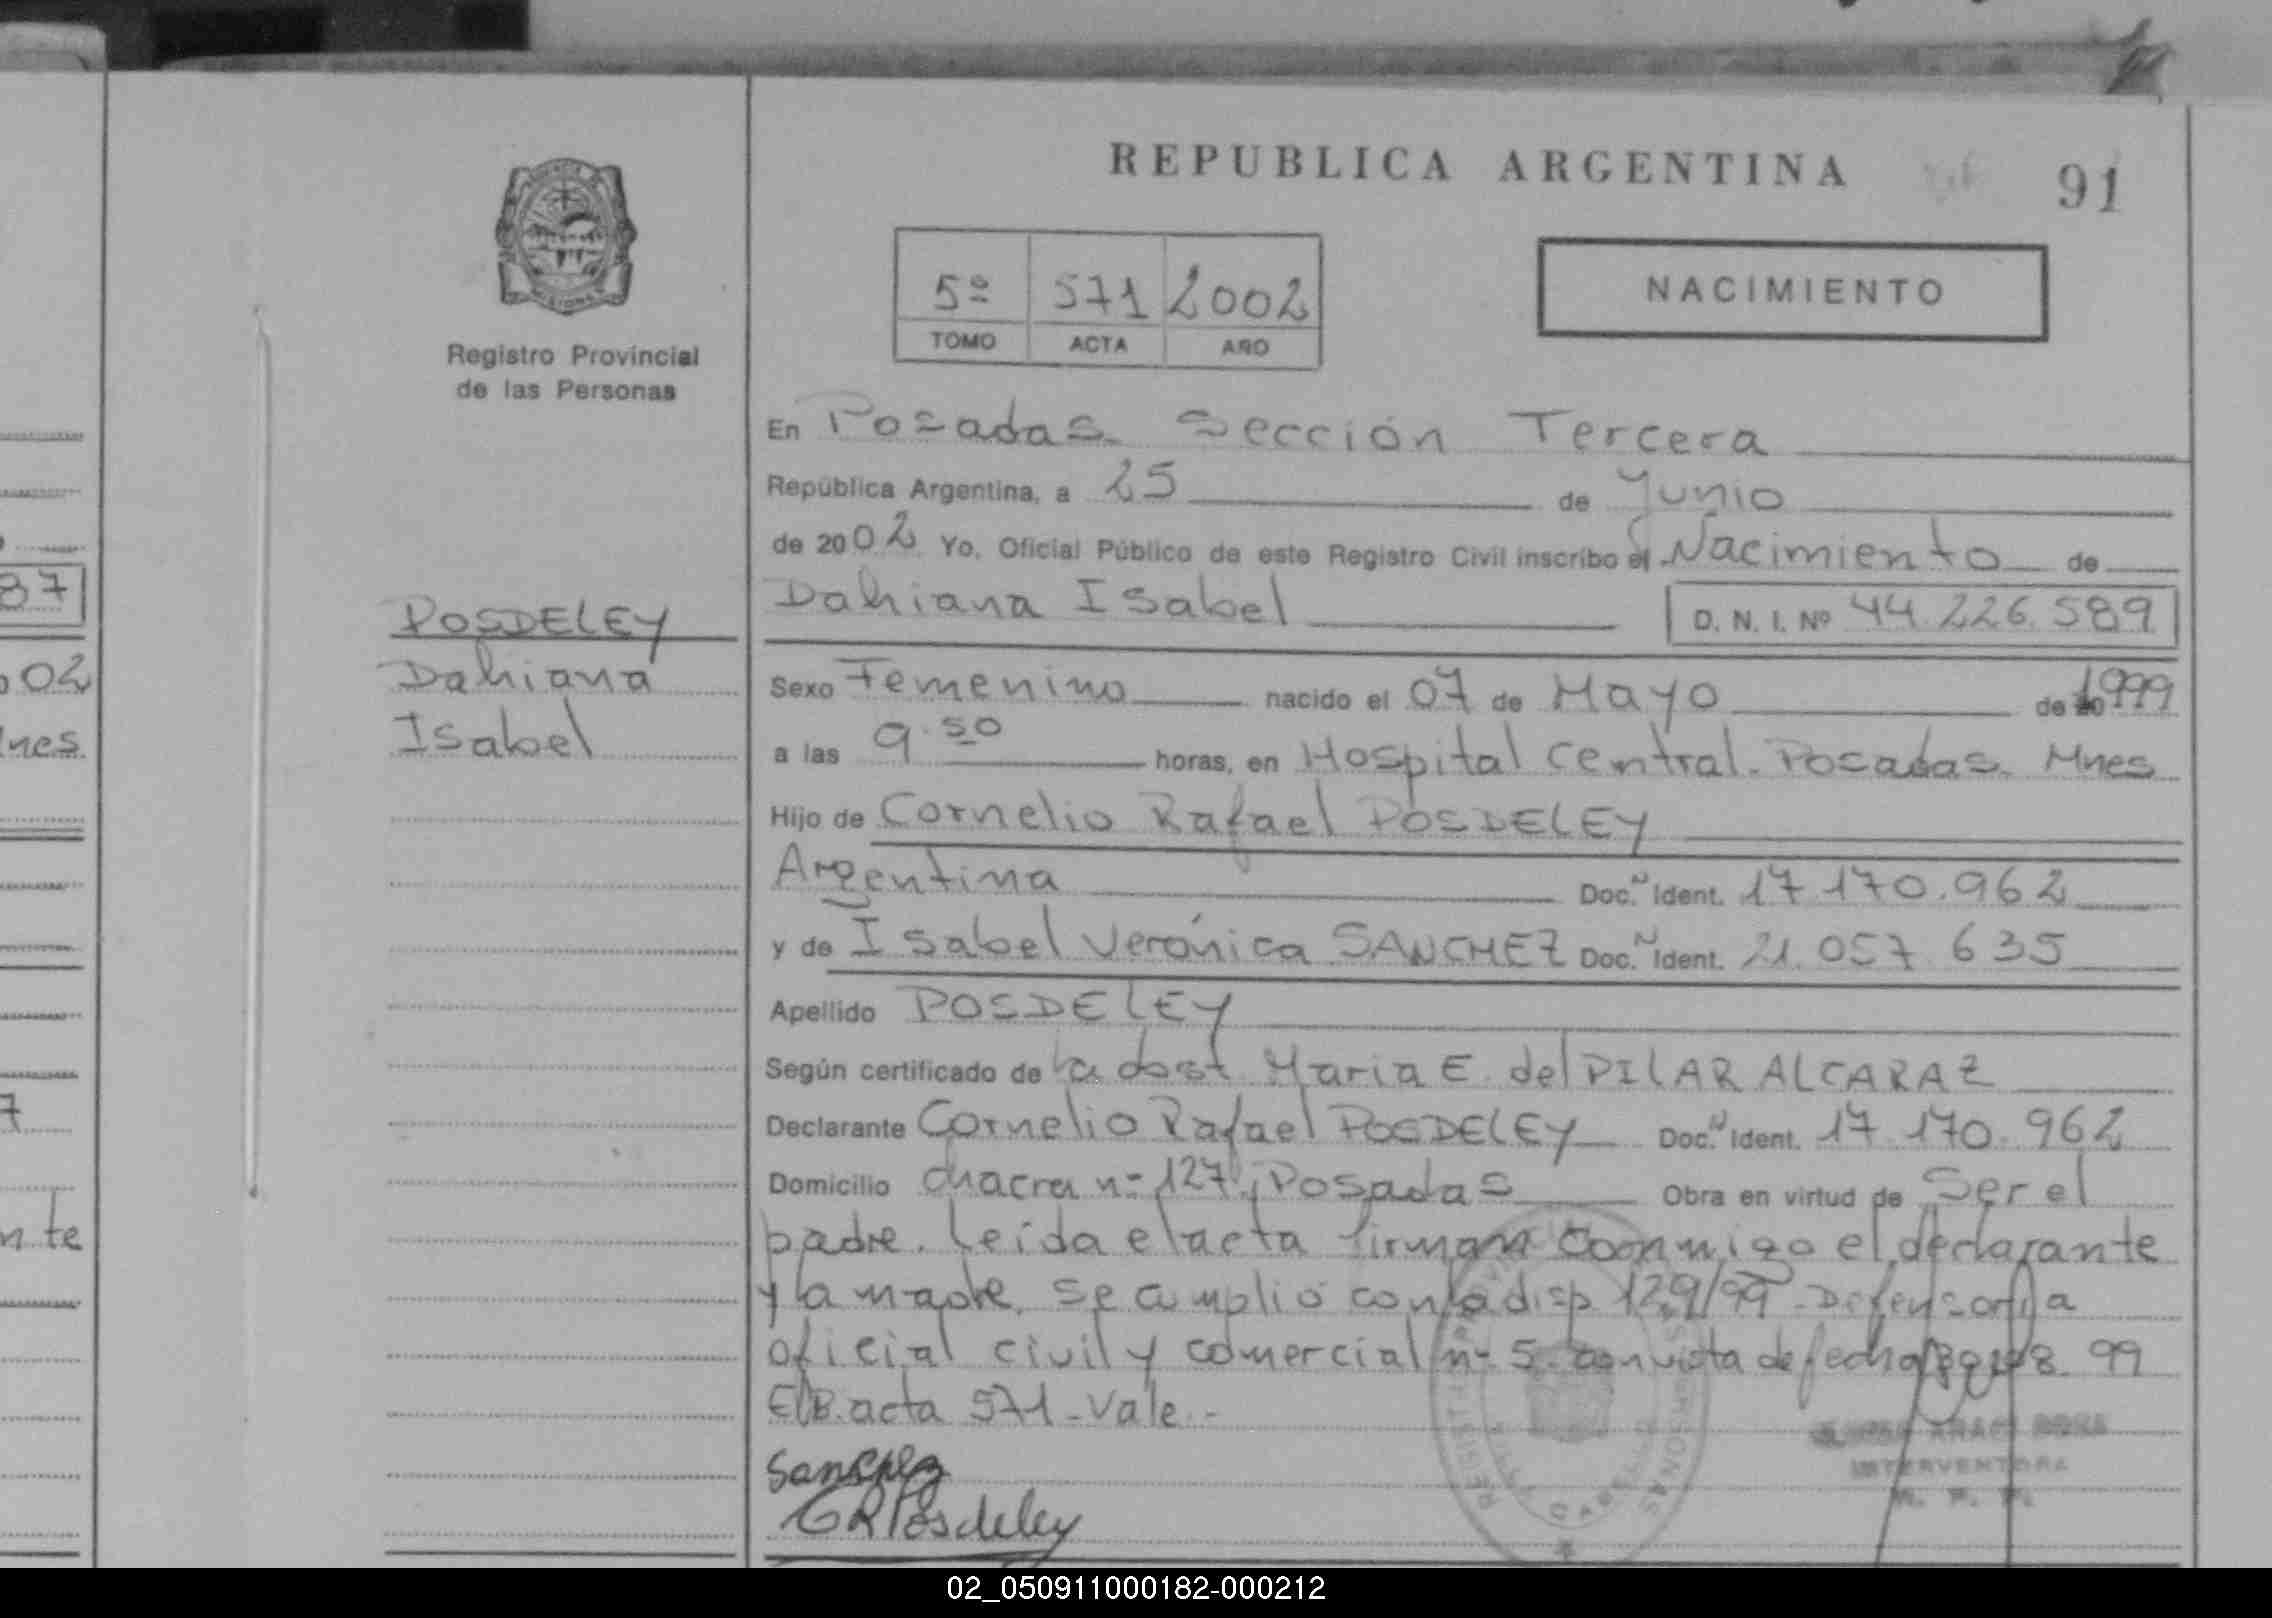 REPUBLICA ARGENTINA
91
5º 571 2002
TOMO ACTA AÑO
NACIMIENTO
MISIONES
Registro Provincial
de las Personas
En Posadas. Sección Tercera
República Argentina, a 25 de Junio
de 2002 Yo, Oficial Público de este Registro Civil inscribo el Nacimiento de
Dahiana Isabel D. N. I. Nº 44.226.589
POSDELEY
Dahiana
Isabel
Sexo Femenino nacido el 07 de Mayo de 1999
a las 9.50 horas, en Hospital Central. Posadas. Mnes
Hijo de Cornelio Rafael POSDELEY
Argentina Doc. N Ident. 17.170.962
y de Isabel Verónica SANCHEZ Doc. N Ident. 21.057.635
Apellido POSDELEY
Según certificado de la obst Maria E. del PILAR ALCARAZ
Declarante Cornelio Rafael POSDELEY Doc. N Ident. 17.170.962
Domicilio chacra nº 127, Posadas Obra en virtud de Ser el
padre. Leída el acta firman conmigo el declarante
y la madre. Se cumplió con la disp 129/99. Defensoría
oficial civil y comercial nº 5. con vista de fecha 8. 99
E/B. acta 571 - Vale. -
Sanchez
CRPosdeley
INTERVENTORA
87
02
nes
7
nte
02_050911000182-000212